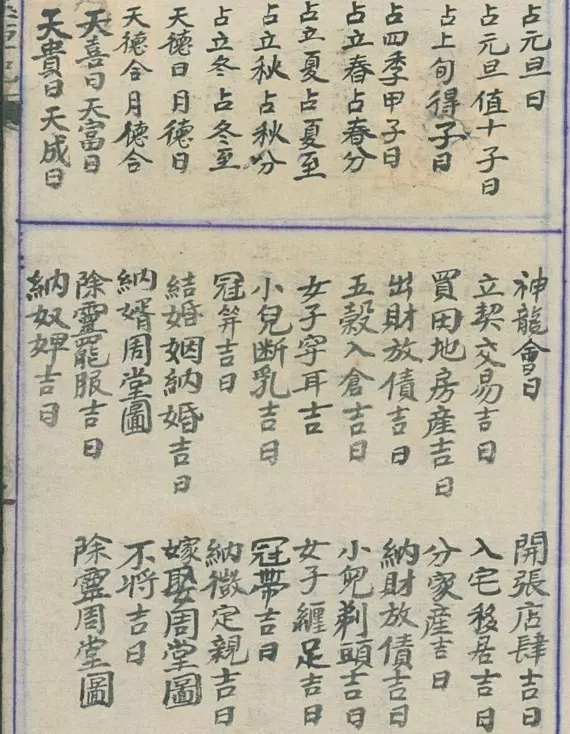 占元旦日
占元旦值十子日
占上旬得子日
占四季甲子日
占立春占春分
占立夏占夏至
占立秋占秋分
占立冬占冬至
天德日月德日
天德合月德合
天喜日天富日
天貴日天成日
神龍會日
立契交易吉日
買田地房產吉日
出財放債吉日
五穀入倉吉日
女子穿耳吉
小兒断乳吉日
冠笄吉日
結婚姻納婚吉日
納婿周堂圖
除靈罷服吉日
納奴婢吉日
開張店肆吉日
入宅移居吉日
分家產吉日
納財放債吉日
小兒剃頭吉日
女子纏足吉日
冠帶吉日
納徵定親吉日
嫁娶周堂圖
不将吉日
除靈周堂圖